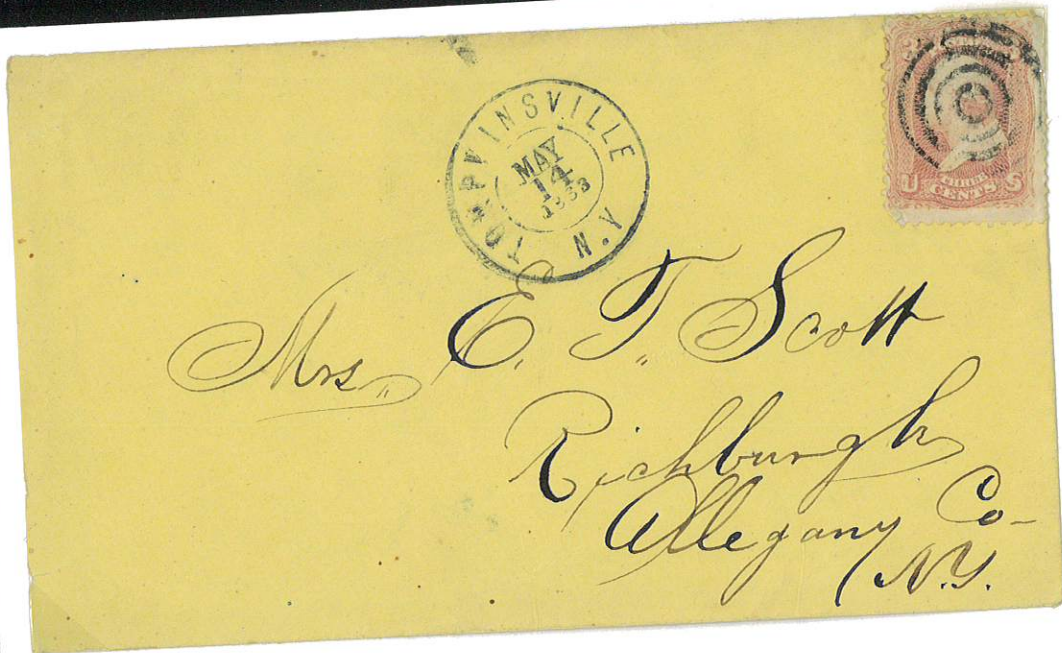 TOMPKINSVILLE N.Y.
MAY
14
1863
U CENTS S
Mrs. E. T. Scott
Richburgh
Allegany Co-
N.Y.